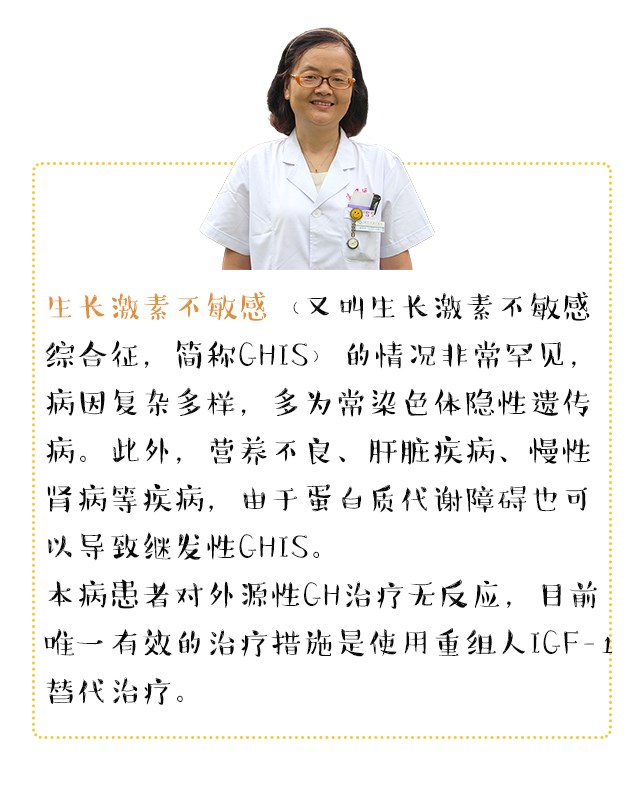 生长激素不敏感（又叫生长激素不敏感
综合征，简称GHIS）的情况非常罕见，
病因复杂多样，多为常染色体隐性遗传
病。此外，营养不良、肝脏疾病、慢性
肾病等疾病，由于蛋白质代谢障碍也可
以导致继发性GHIS。
本病患者对外源性GH治疗无反应，目前
唯一有效的治疗措施是使用重组人IGF-1
替代治疗。